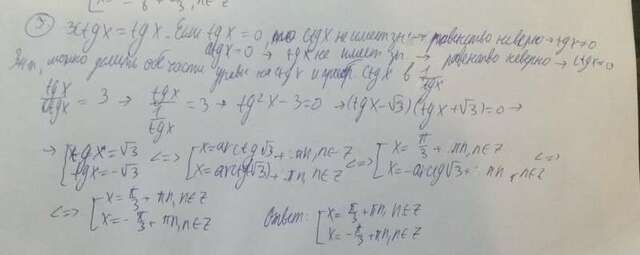 5) 3ctgx = tgx. Если tgx = 0, то ctgx не имеет зн. → равенство неверно → tgx ≠ 0
ctgx = 0 → tgx не имеет зн. → равенство неверно → ctgx ≠ 0
можно делить обе части на ctgx и ctgx в 1/tgx
tgx/ctgx = 3 → tgx/(1/tgx) = 3 → tg²x - 3 = 0 → (tgx - √3)(tgx + √3) = 0 →
→ [tgx = √3 [tgx = -√3 <=> [x = arctg√3 + πn, n∈Z [x = arctg(-√3) + πn, n∈Z <=> [x = π/3 + πn, n∈Z [x = -arctg√3 + πn, n∈Z <=>
<=> [x = π/3 + πn, n∈Z [x = -π/3 + πn, n∈Z Ответ: [x = π/3 + πn, n∈Z [x = -π/3 + πn, n∈Z